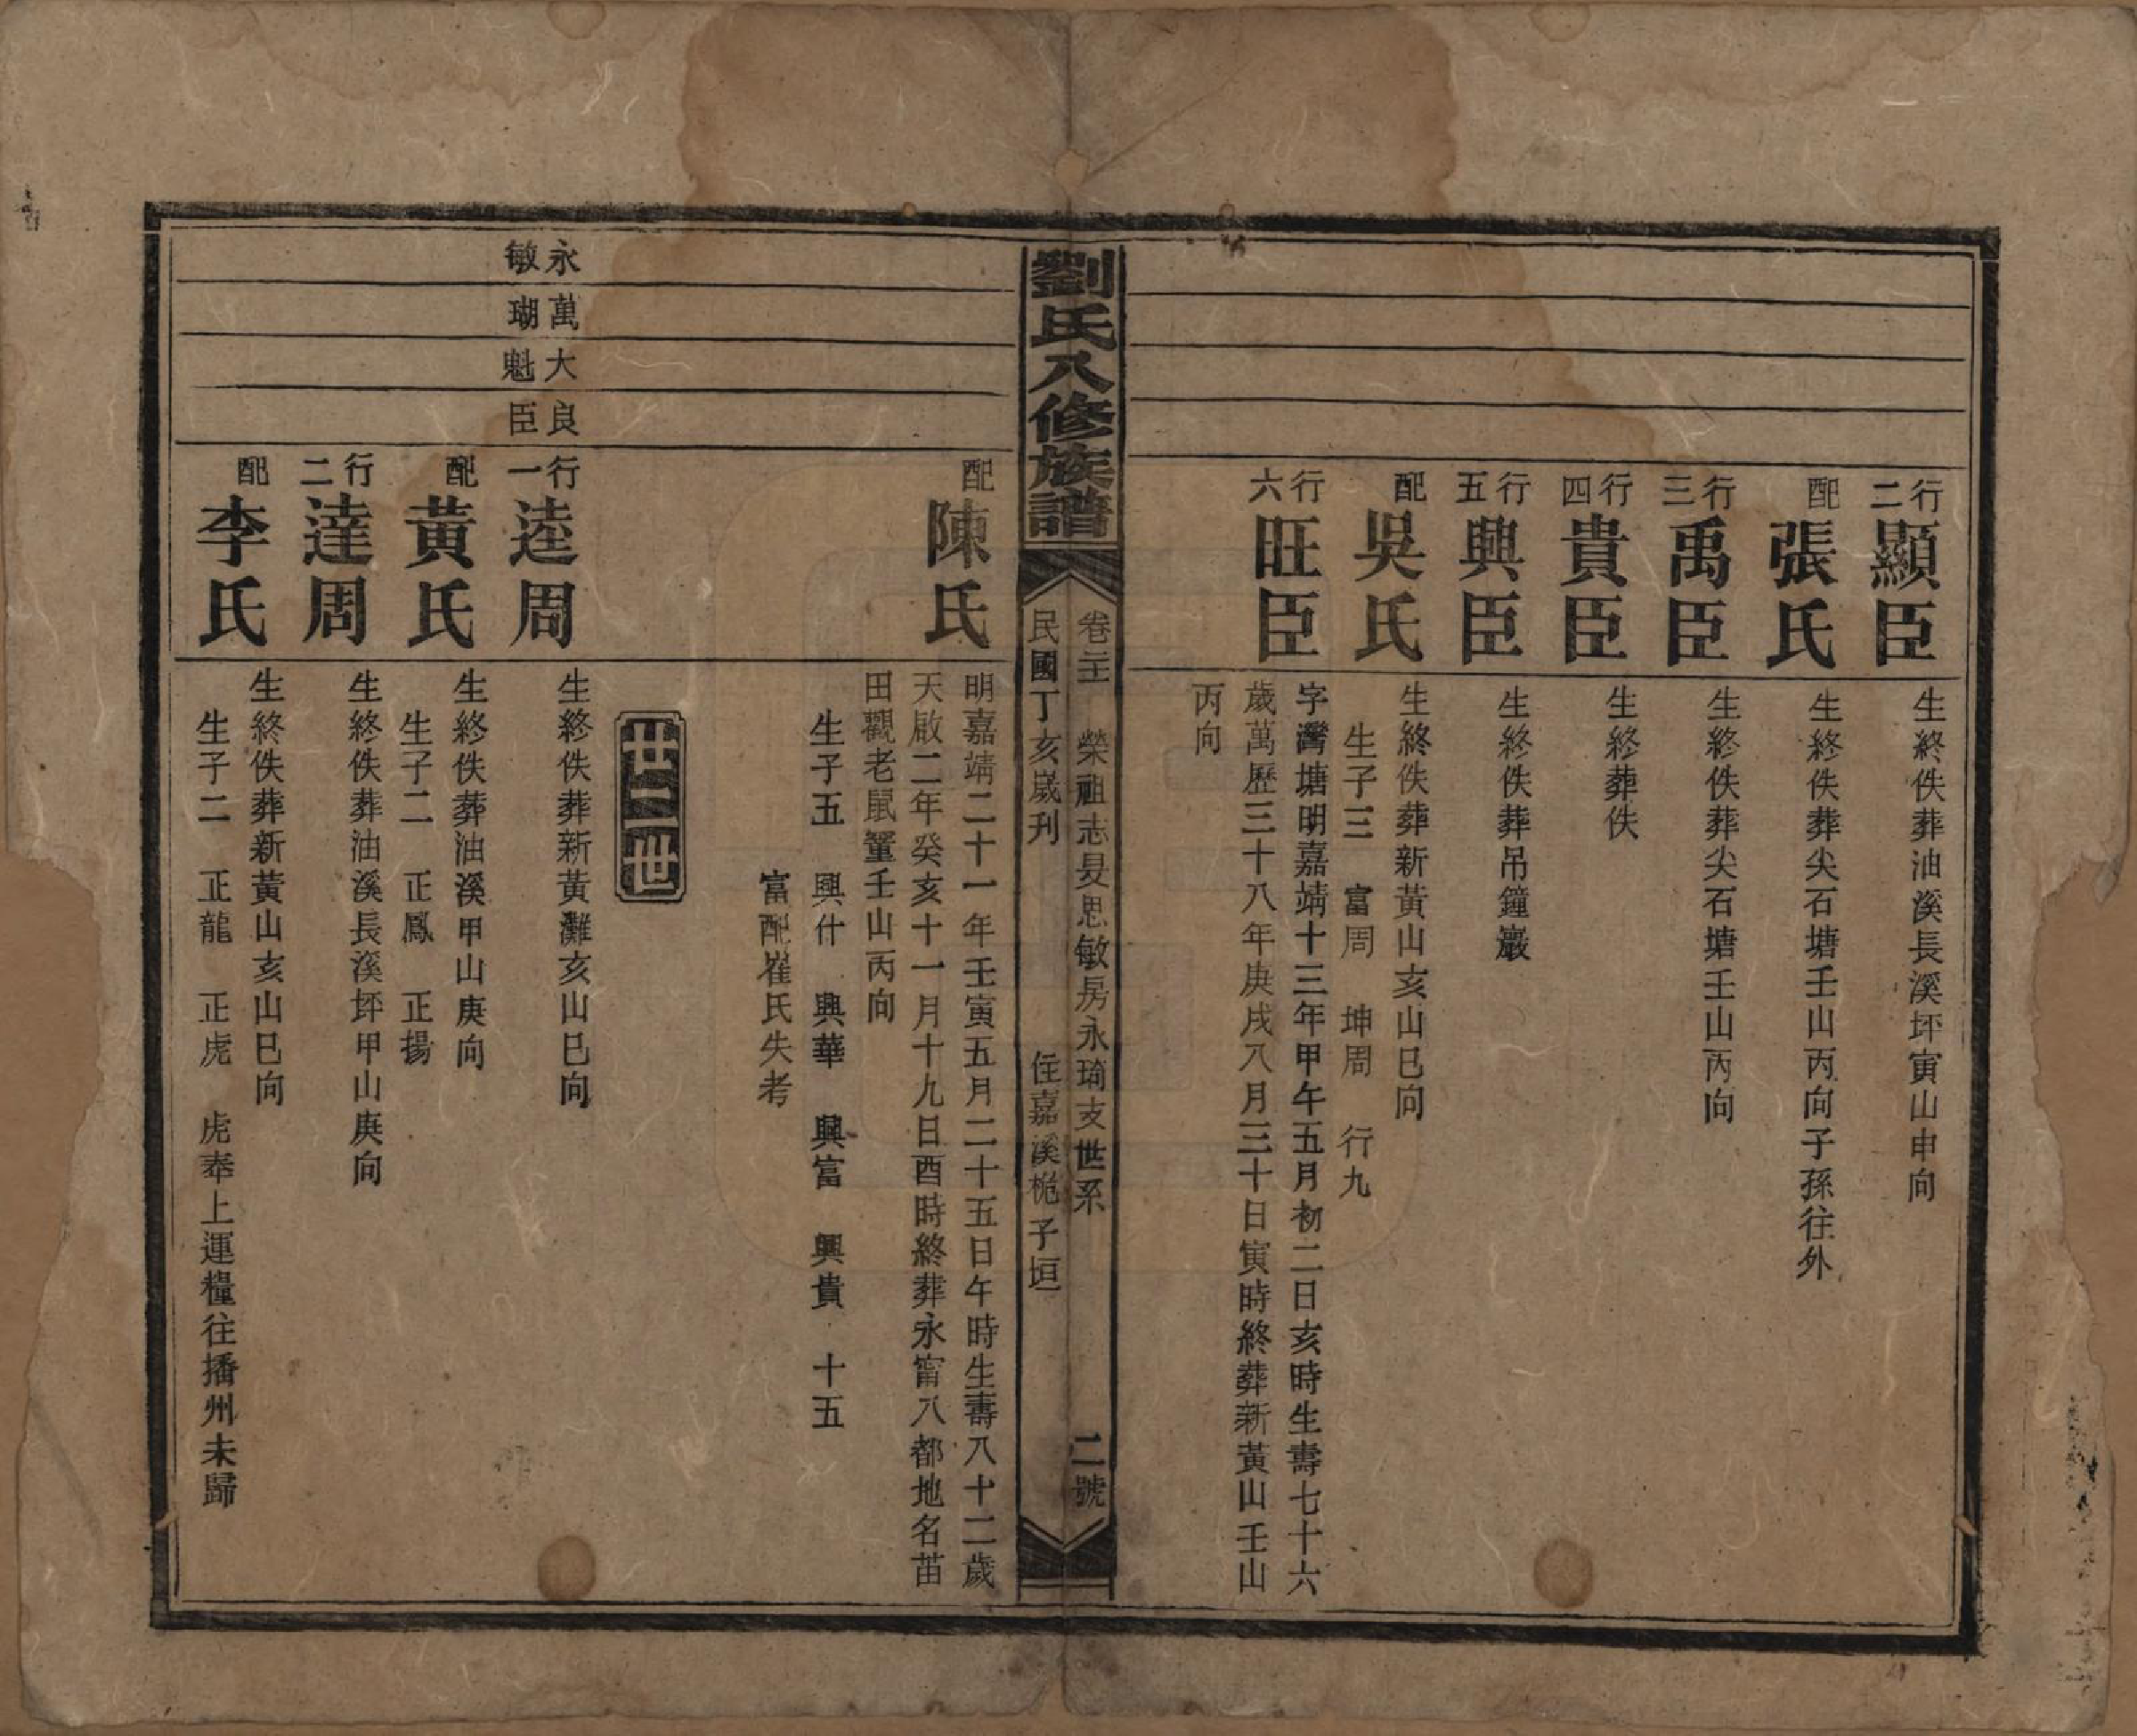 行二
顯臣
生終佚葬油溪長溪坪寅山申向
配
張氏
生終佚葬尖石塘壬山丙向子孫往外
行三
禹臣
生終佚葬尖石塘壬山丙向
行四
貴臣
生終葬佚
行五
興臣
生終佚葬吊鐘巖
配
吳氏
生終佚葬新黃山亥山巳向
生子三 富周 坤周 行九
行六
旺臣
字灣塘明嘉靖十三年甲午五月初二日亥時生壽七十六
歲萬歷三十八年庚戌八月三十日寅時終葬新黃山壬山
丙向
劉氏八修族譜
卷二 榮祖志旻思敏房永琦支世系 二號
民國丁亥歲刋 住嘉溪桅子垣
配
陳氏
明嘉靖二十一年壬寅五月二十五日午時生壽八十二歲
天啟二年癸亥十一月十九日酉時終葬永甯八都地名苗
田觀老鼠壟壬山丙向
生子五 興什 興華 興富 興貴 十五
富配崔氏失考
廿二世
永敏
萬瑚
大魁
良臣
行一
逵周
生終佚葬新黃灘亥山巳向
配
黃氏
生終佚葬油溪甲山庚向
生子二 正鳳 正揚
行二
達周
生終佚葬油溪長溪坪甲山庚向
配
李氏
生終佚葬新黃山亥山巳向
生子二 正龍 正虎 虎奉上運糧往播州未歸